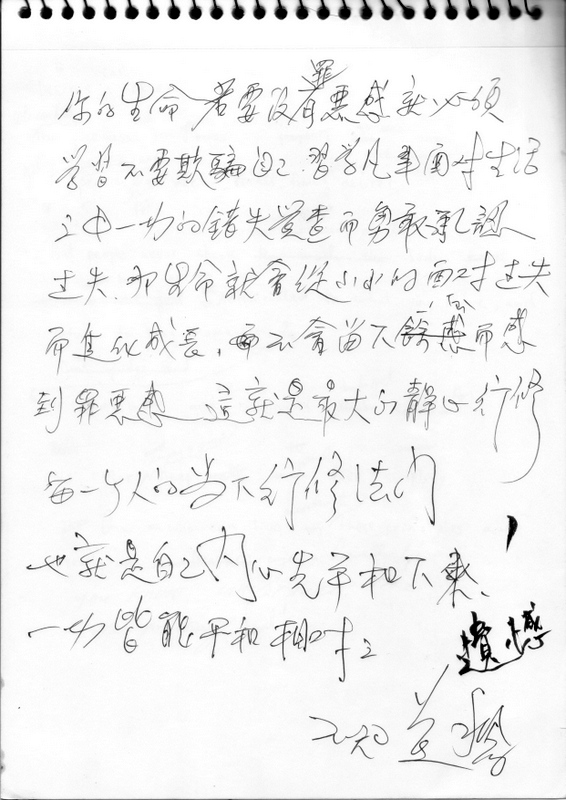 你的生命若要沒有罪惡感就必須
學習不要欺騙自己.習學凡事面對生活
之中一切的錯失覺查而勇敢承認
過失.那生命就會從小小的面對過失
而進化成長,而不會留下遺憾而感
到罪惡感 這就是最大的靜心行修
每一个人的当下行修法门
也就是自己内心先平和下來、
一切皆能平和相对之
遺憾